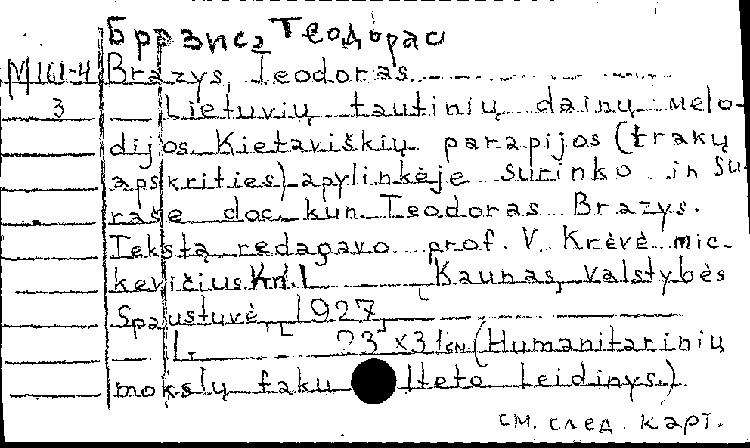 Бразис, Теодорас
М161-4 Brazys, Teodoras
3 Lietuvių tautinių dainų melo-
dijos Kietaviškių parapijos (trakų
apskrities) apylinkėje surinko ir su-
rašė doc. kun. Teodoras Brazys.
Teksta redagavo prof. V. Krėvė mic-
kevičius Kn.1 Kaunas, Valstybės
Spaustuvė, 1927
L. 23 x 31 см (Humanitarinių
mokslų faku lteto leidinys.)
см. след. карт.